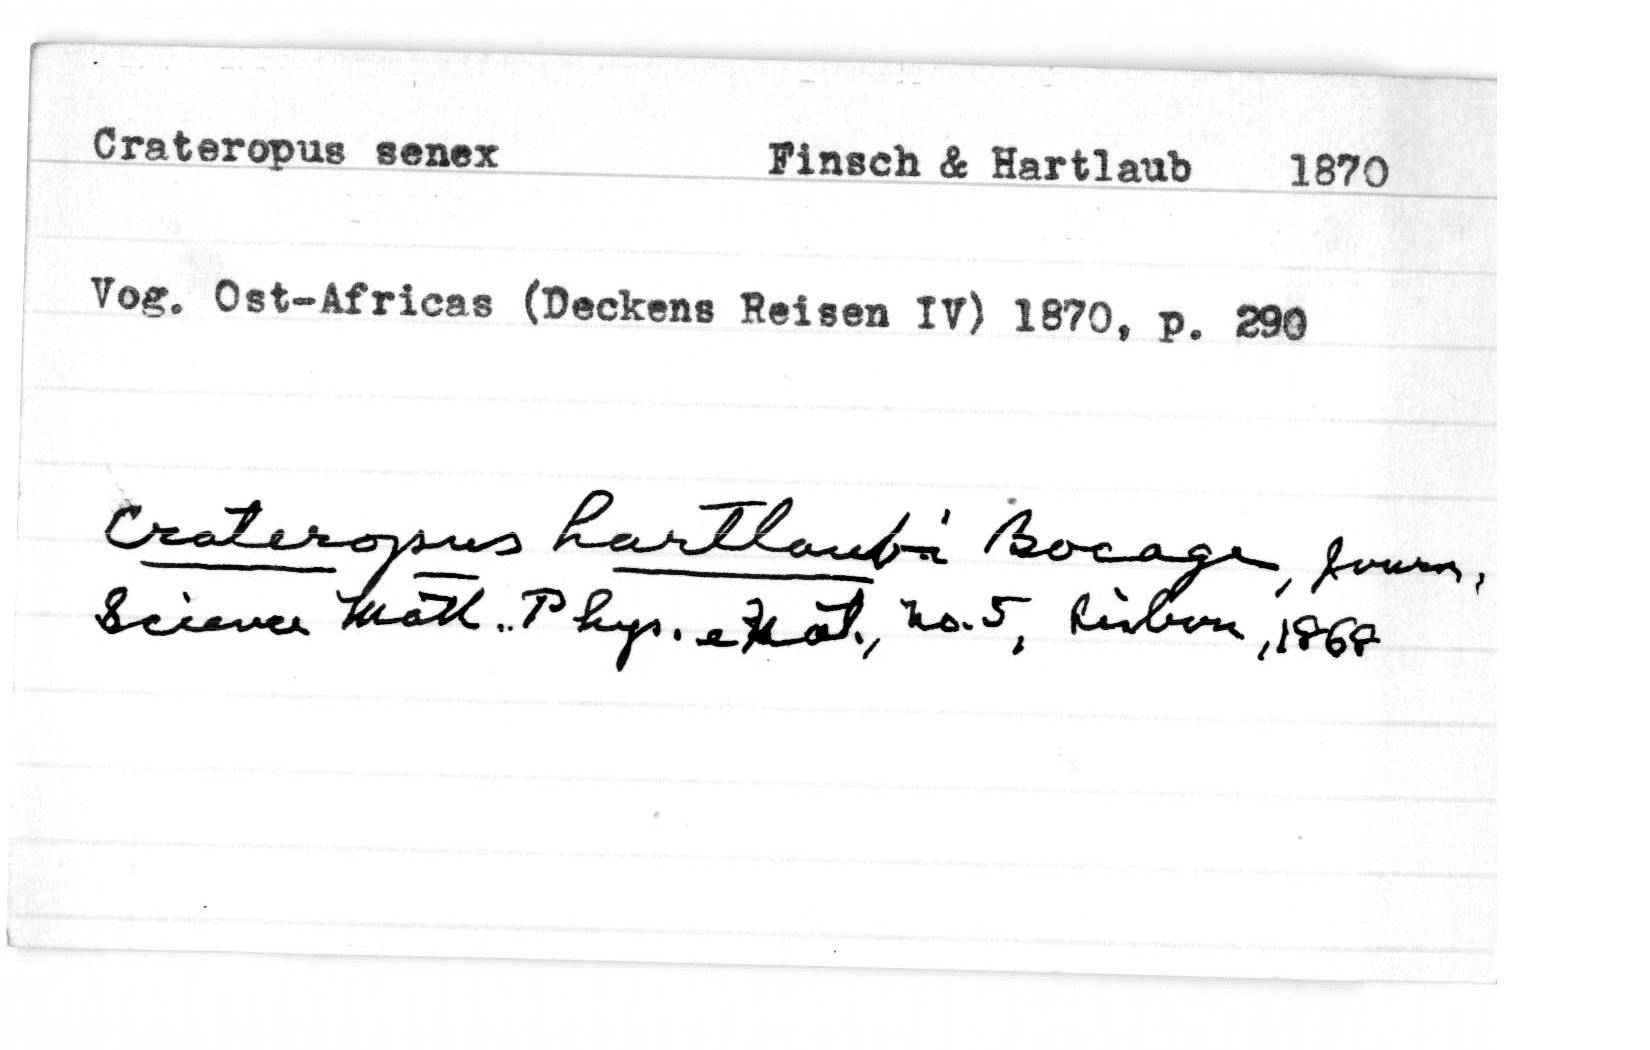 Crateropus senex Finsch & Hartlaub 1870
Vog. Ost-Africas (Deckens Reisen IV) 1870, p. 290
Crateropus hartlaubi Bocage, Journ.
Science Math. Phys. e Nat., no. 5, Lisbon, 1868